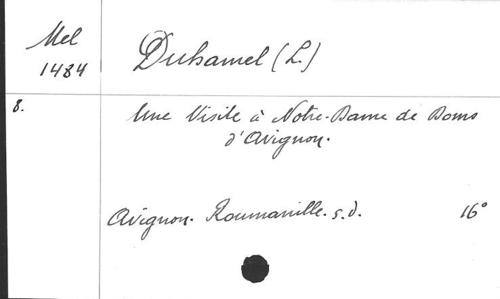 Mel
1484
Duhamel (L.)
8.
Une Visite à Notre-Dame de Doms
d'Avignon.
Avignon. Roumanille. s.d. 16°